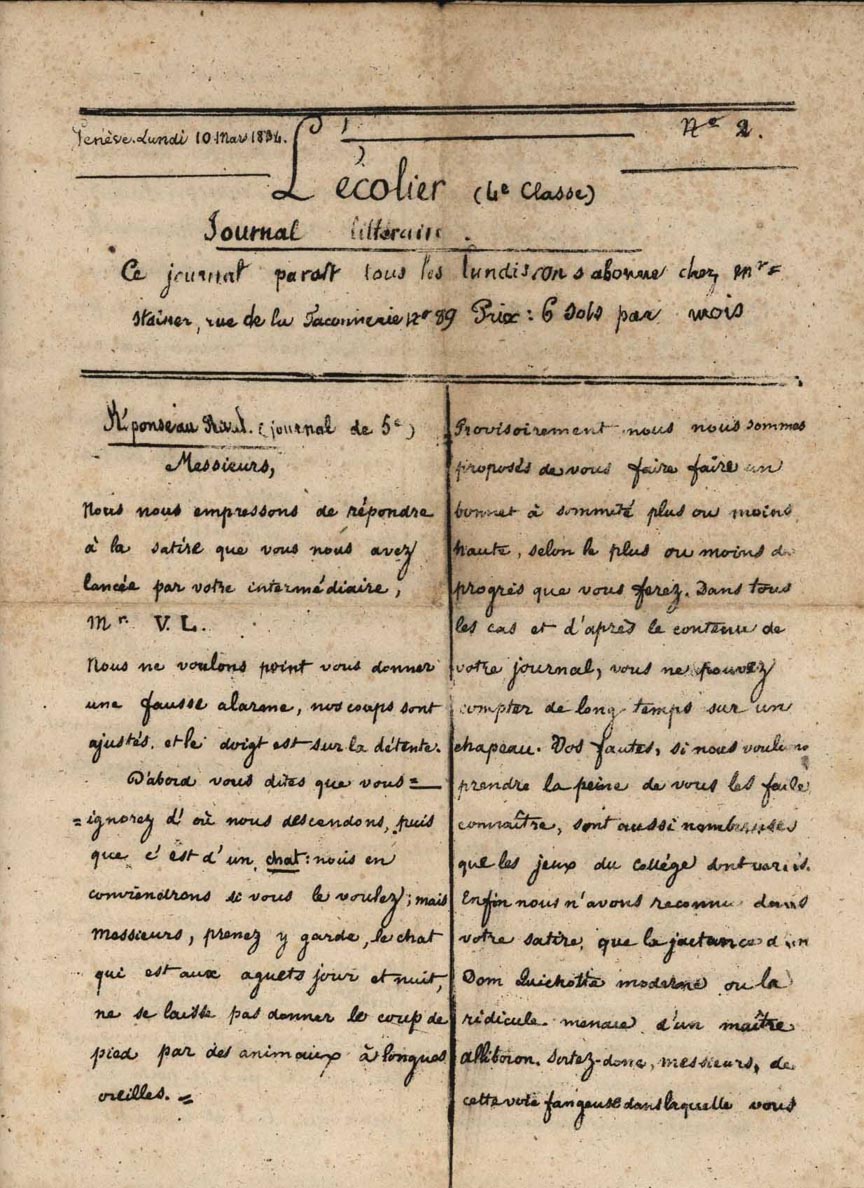 Genève. Lundi 10 Mars 1834.
N° 2.
L'écolier (4e Classe)
Journal littéraire.
Ce journal paraît tous les lundis on s'abonne chez Mr =
Stainer, rue de la Taconnerie No 89 Prix : 6 sols par mois
Réponse au Rival. (journal de 5e)
Messieurs,
Nous nous empressons de répondre
à la satire que vous nous avez
lancée par votre intermédiaire,
Mr. V. L.
Nous ne voulons point vous donner
une fausse alarme, nos coups sont
ajustés. et le doigt est sur la détente.
D'abord vous dites que vous =
= ignorez d'où nous descendons, puis
que c'est d'un chat : nous en
conviendrons si vous le voulez ; mais
Messieurs, prenez y garde, le chat
qui est aux aguets jour et nuit,
ne se laisse pas donner le coup de
pied par des animaux à longues
oreilles. =
Provisoirement nous nous sommes
proposés de vous faire faire un
bonnet à sommité plus ou moins
haute, selon le plus ou moins de
progrès que vous ferez. Dans tous
les cas et d'après le contenu de
votre journal, vous ne pouvez
compter de long-temps sur un
chapeau. Vos fautes, si nous voulions
prendre la peine de vous les faire
connaître, sont aussi nombreuses
que les jeux du collége sont variés.
Enfin nous n'avons reconnu dans
votre satire, que la jactance d'un
Dom Quichotte moderne ou la
ridicule menace d'un maître
Alliboron. Sortez-donc, messieurs, de
cette voie fangeuse dans laquelle vous